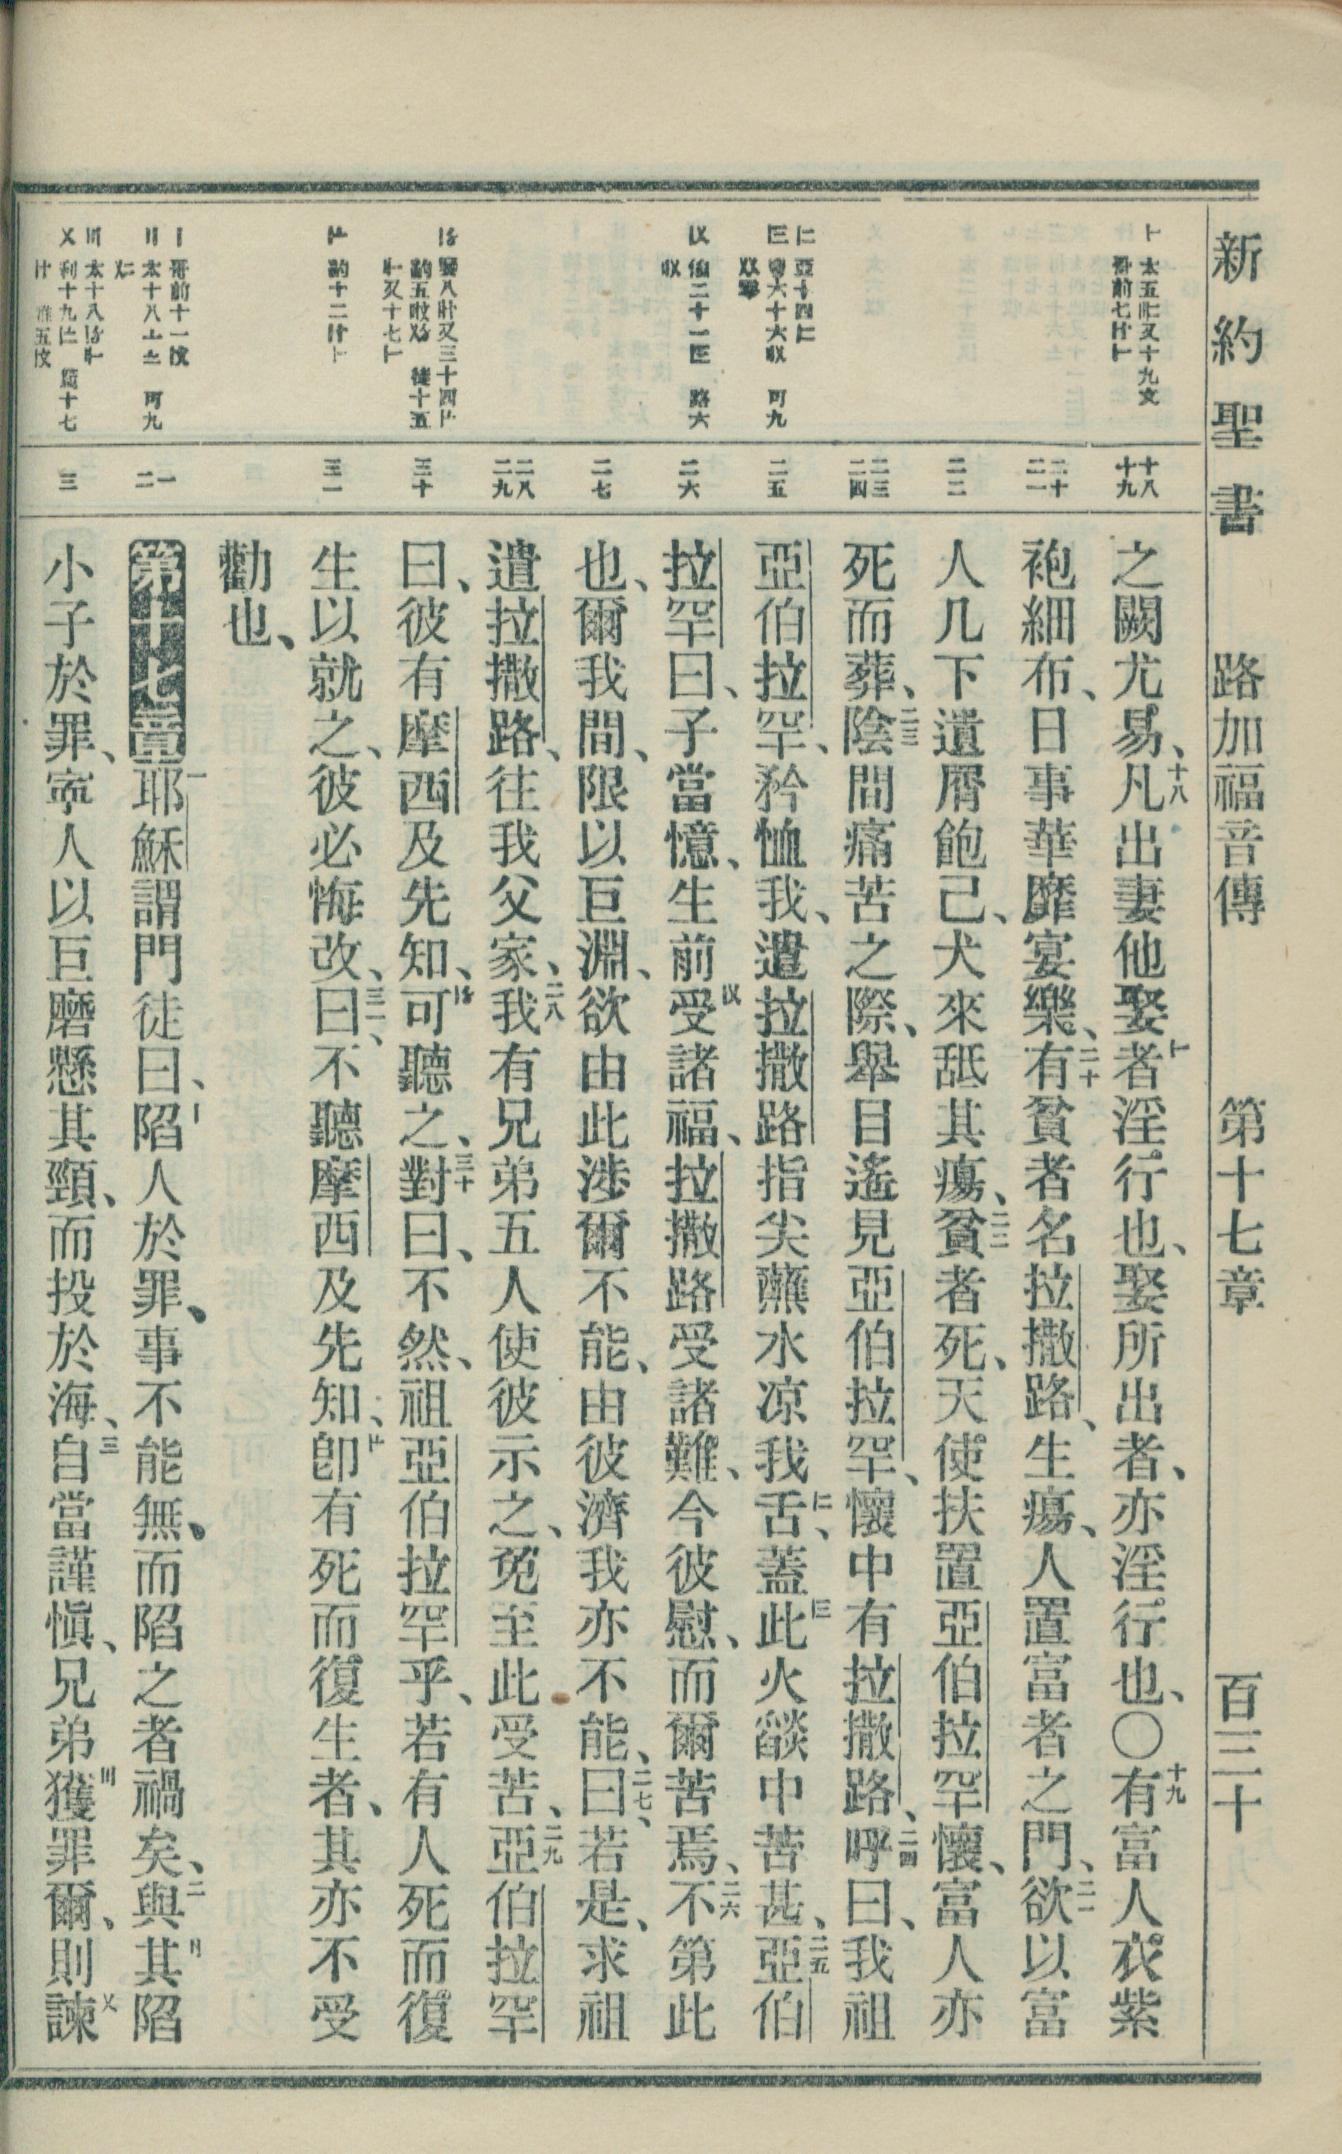 新約聖書　路加福音傳　第十七章　百三十
十八
十九
二十
二一
二二
二三
二四
二五
二六
二七
二八
二九
三十
三一
一
二
三
之闕尤易、十八凡出妻他娶者淫行也、娶所出者、亦淫行也、〇十九有富人衣紫
袍細布、日事華靡宴樂、二十有貧者名拉撒路、生瘍、人置富者之門、二一欲以富
人几下遺屑飽己、犬來舐其瘍、二二貧者死、天使扶置亞伯拉罕懷、富人亦
死而葬、二三陰間痛苦之際、舉目遙見亞伯拉罕、懷中有拉撒路、二四呼曰、我祖
亞伯拉罕、矜恤我、遣拉撒路指尖蘸水凉我舌、蓋此火燄中苦甚、二五亞伯
拉罕曰、子當憶、生前受諸福、拉撒路受諸難、今彼慰、而爾苦焉、二六不第此
也、爾我間、限以巨淵、欲由此涉爾不能、由彼濟我亦不能、二七曰、若是、求祖
遣拉撒路、往我父家、二八我有兄弟五人使彼示之、免至此受苦、二九亞伯拉罕
曰、彼有摩西及先知、可聽之、三十對曰、不然、祖亞伯拉罕乎、若有人死而復
生以就之、彼必悔改、三一曰、不聽摩西及先知、卽有死而復生者、其亦不受
勸也、
第十七章一耶穌謂門徒曰、陷人於罪、事不能無、而陷之者禍矣、二與其陷
小子於罪、寧人以巨磨懸其頸、而投於海、三自當謹愼、兄弟獲罪爾、則諫